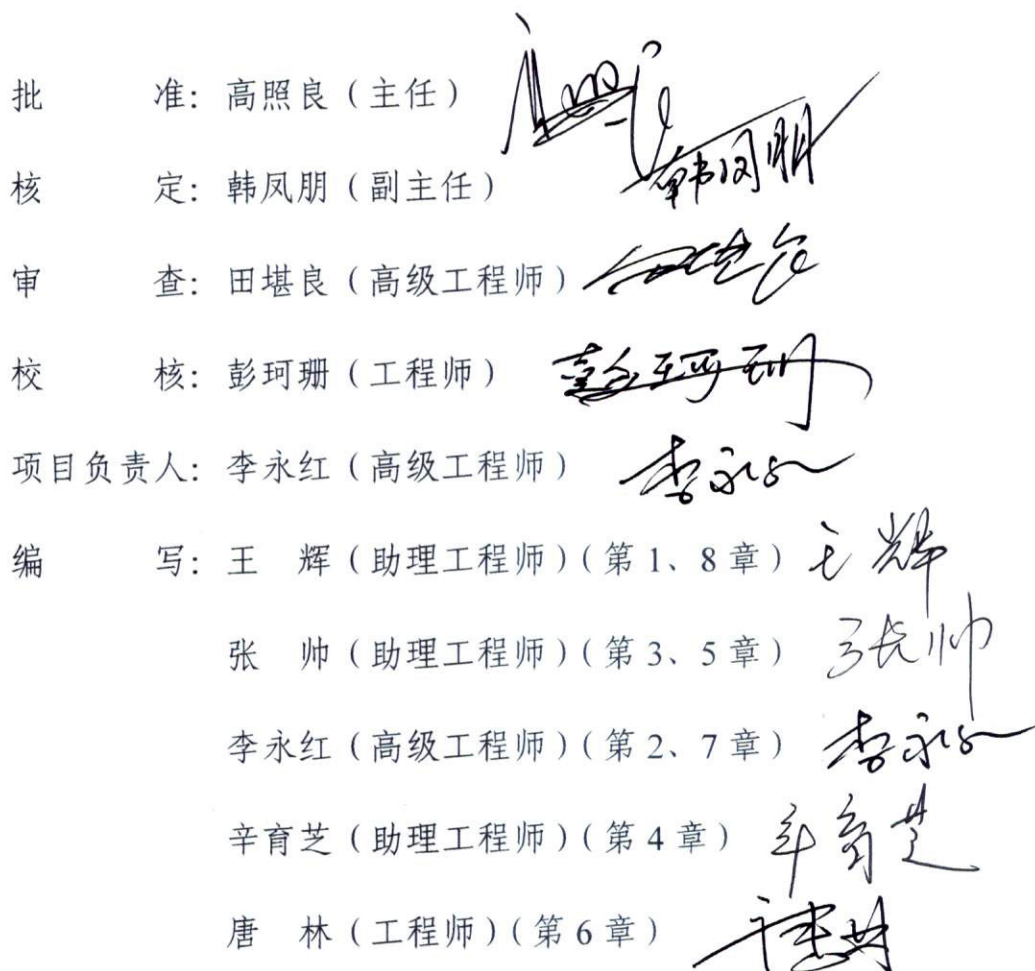 批 准：高照良（主任）
核 定：韩凤朋（副主任） 韩凤朋
审 查：田堪良（高级工程师）
校 核：彭珂珊（工程师） 彭珂珊
项目负责人：李永红（高级工程师） 李永红
编 写：王 辉（助理工程师）（第1、8章） 王辉
张 帅（助理工程师）（第3、5章） 张帅
李永红（高级工程师）（第2、7章） 李永红
辛育芝（助理工程师）（第4章） 辛育芝
唐 林（工程师）（第6章）